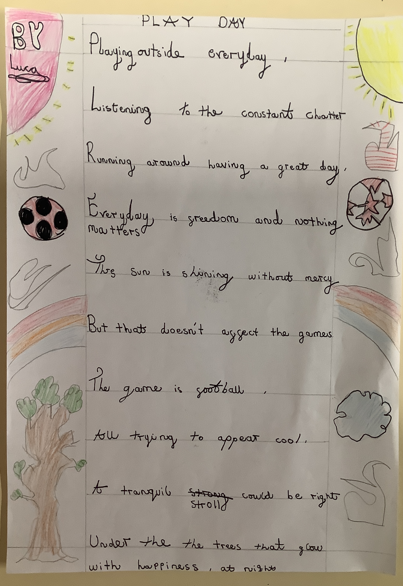 PLAY DAY
BY
Luca
Playing outside everyday,
Listening to the constant chatter
Running around having a great day.
Everyday is freedom and nothing
matters
The sun is shining without mercy
But thats doesn't affect the games
The game is football.
All trying to appear cool.
A tranquil strong could be right
stroll
Under the the trees that glow
with happiness, at night